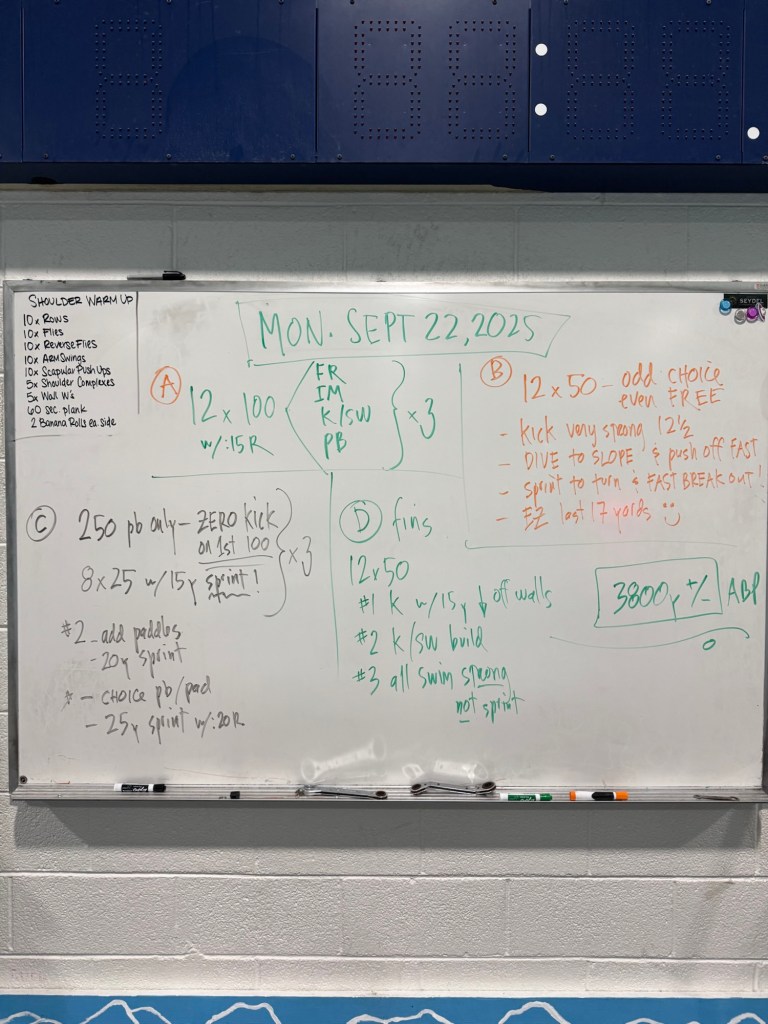 SHOULDER WARM UP
10x ROWS
10x Flies
10x Reverse Flies
10x ARM Swings
10x Scapular Push Ups
5x Shoulder Complexes
5x Wall W's
60 sec. plank
2 Banana Rolls ea. side
MON. SEPT 22, 2025
A
12 x 100
w/:15 R
FR
IM
K/SW
PB
x 3
B
12 x 50 - odd CHOICE
even FREE
- kick very strong 12½
- DIVE to SLOPE & push off FAST
- sprint to turn & FAST BREAKOUT!
- EZ last 17 yards
C
250 pb only - ZERO kick
on 1st 100
8 x 25 w/15y sprint!
x 3
#2 - add paddles
- 20y sprint
- CHOICE pb/pad
- 25y sprint w/:20R
D fins
12 x 50
#1 K w/15y ↓ off walls
#2 K/SW build
#3 all swim strong
not sprint
3800y +/- ABP